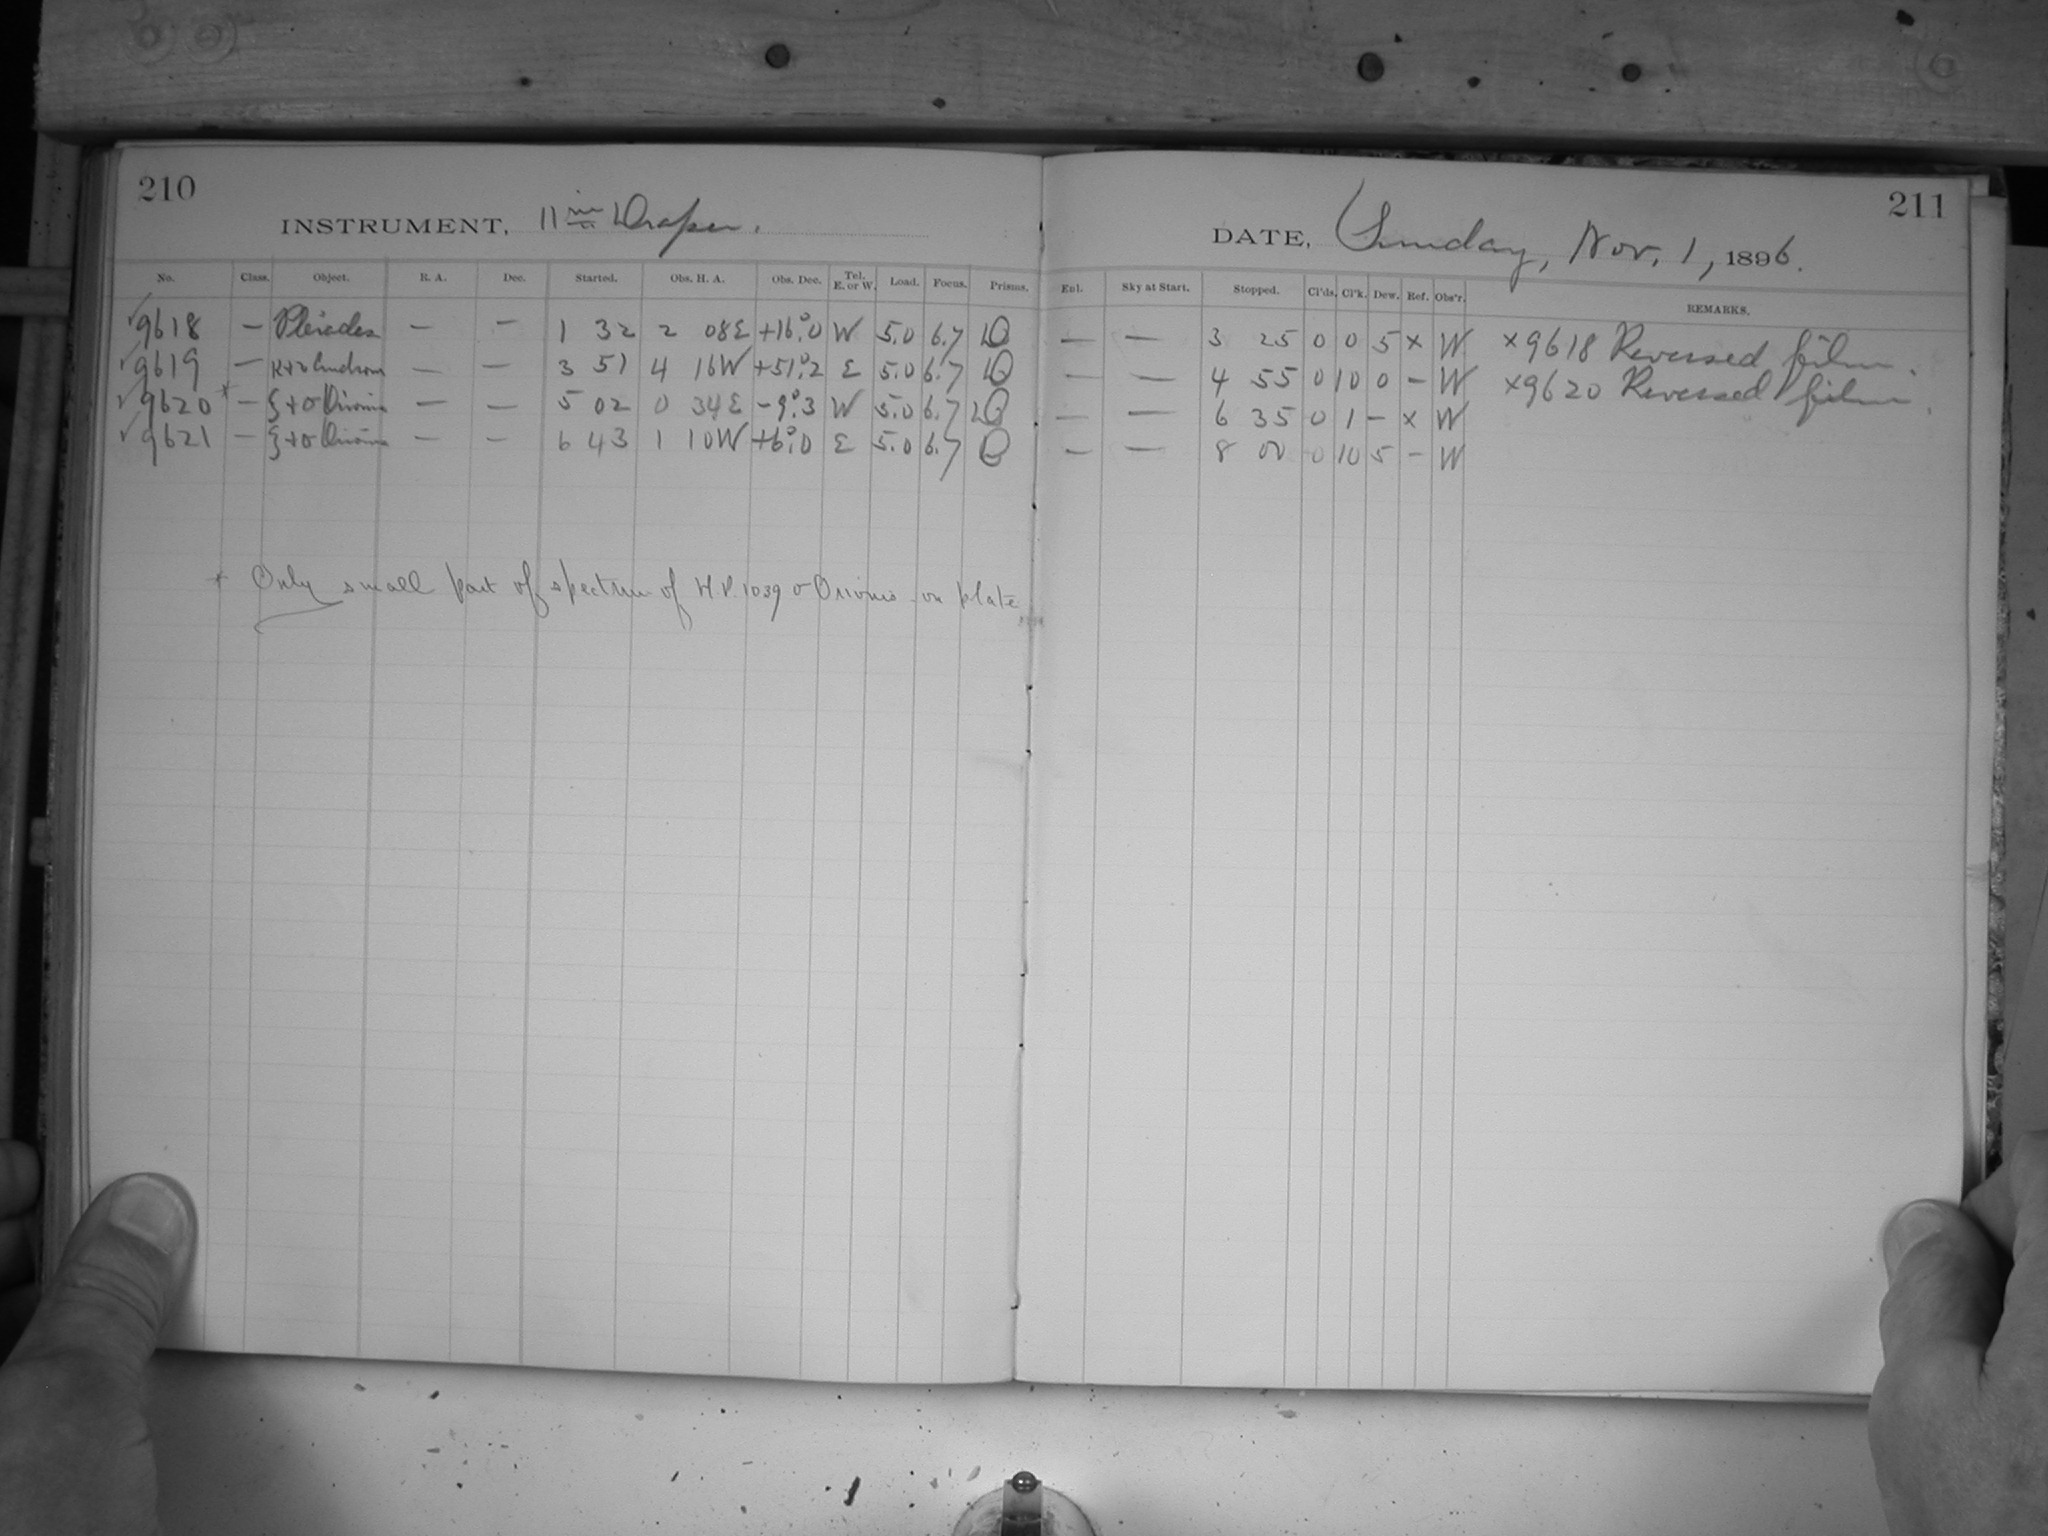 210
INSTRUMENT, 11 in Draper.
No. Class. Object. R. A. Dec. Started. Obs. H. A. Obs. Dec. Tel. E. or W. Load. Focus. Prisms.
✓9618 — Pleiades — — 1 32 2 08E +16°.0 W 5.0 6.7
✓9619 — — — 3 51 4 16W +51°.2 E 5.0 6.7
✓9620* — ζ+σ Orionis — — 5 02 0 34E -9°.3 W 5.0 6.7
✓9621 — ζ+σ Orionis — — 6 43 1 10W +6°.0 E 5.0 6.7
* Only small part of spectrum of H.P. 1039 σ Orionis on plate
211
DATE, Sunday, Nov. 1, 1896.
Enl. Sky at Start. Stopped. Cl'ds. Cl'k. Dew. Ref. Obs'r. REMARKS.
— — 3 25 0 0 5 × W ×9618 Reversed film.
— — 4 55 0 10 0 – W ×9620 Reversed film.
— — 6 35 0 1 – × W
— — 8 00 0 10 5 – W